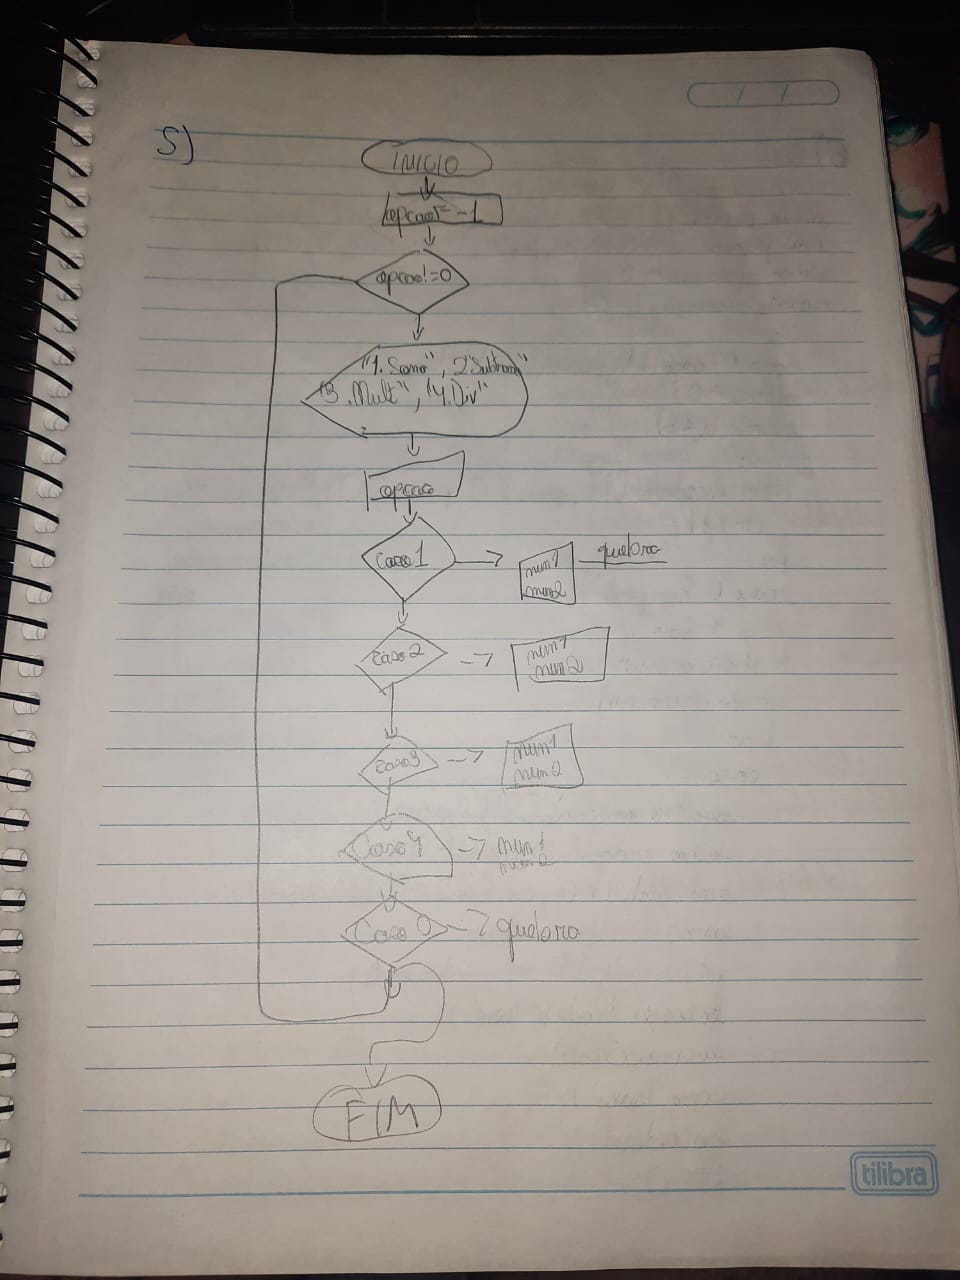 5)
INICIO
opcao = -1
opcao != 0
"1. Soma", 2 "Subtrai"
"3. Mult", "4. Div"
opcao
Caso 1
num1
num2
quebra
Caso 2
num1
num2
Caso 3
num1
num2
Caso 4
num1
num2
Caso 0
quebra
FIM
tilibra